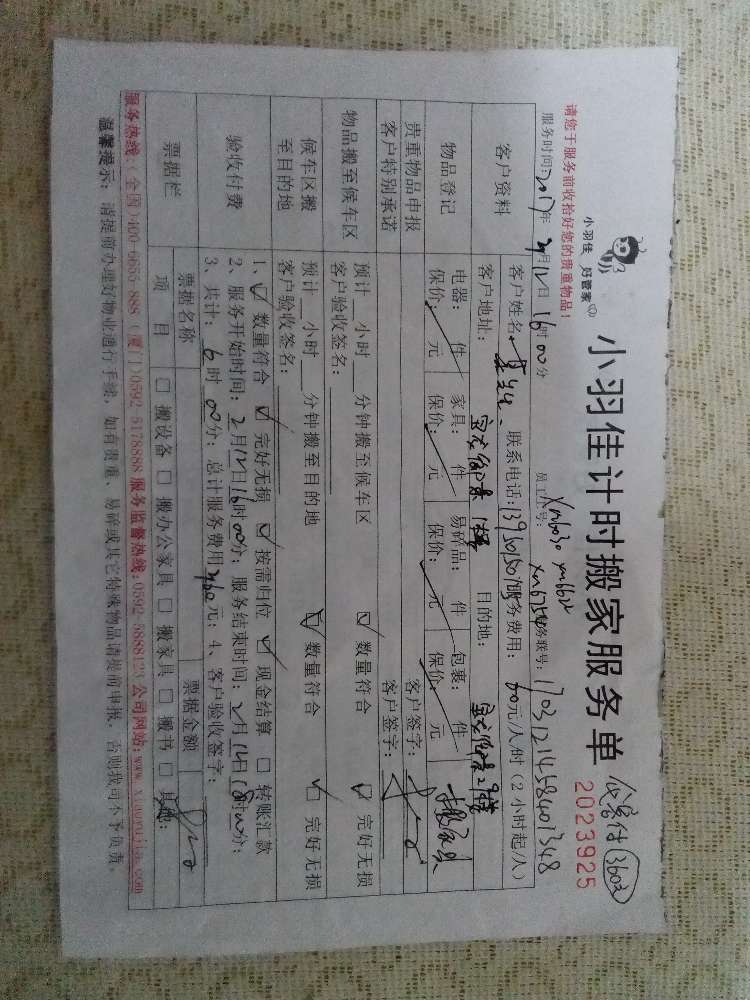 小羽佳 好管家
小羽佳计时搬家服务单
2023925
请您于服务前收拾好您的贵重物品！
服务时间：2017年3月12日16时00分
员工工号：Xm6030 xm6612
1703121458401348
客户资料
客户姓名： 联系电话： 服务费用：60元/人/时（2小时起/人）
客户地址： 目的地：
物品登记
电器： 件 家具： 件 易碎品： 件 包裹： 件
保价： 元 保价： 元 保价： 元 保价： 元
贵重物品申报
客户签字：
客户特别承诺
客户签字：
物品搬至候车区
预计 小时 分钟搬至候车区 ☑ 数量符合 ☑ 完好无损
客户验收签名：
候车区搬至目的地
预计 小时 分钟搬至目的地 ☑ 数量符合 ☑ 完好无损
客户验收签名：
验收付费
1、☑ 数量符合 ☑ 完好无损 ☑ 按需归位 ☑ 现金结算 □ 转账汇款
2、服务开始时间：2月12日16时00分；服务结束时间：2月12日18时00分；
3、共计：6时00分；总计服务费用360元；4、客户验收签字：
票据栏
票据名称 票据金额
项目 □ 搬设备 □ 搬办公家具 □ 搬家具 □ 搬书 □ 其他：
服务热线：（全国）400-6655-888（厦门）0592-5178888 服务监督热线：0592-5888123 公司网站：www.xiaoyujia.com
温馨提示：请提前办理好物业通行手续，如有贵重、易碎或其它特殊物品请提前申报，否则我司不予负责。